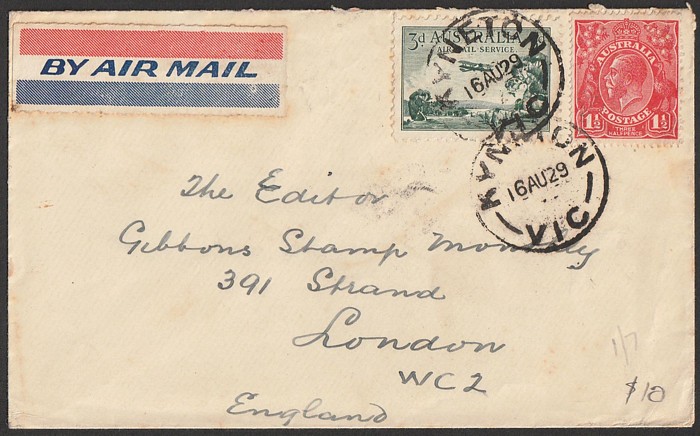 BY AIR MAIL
3d AUSTRALIA
AIR MAIL SERVICE
AUSTRALIA
1½ POSTAGE 1½
THREE
HALFPENCE
KYNETON
16AU29
VIC
KYNETON
16AU29
VIC
The Editor
Gibbons Stamp Monthly
391 Strand
London
WC2
England
1/7
$10